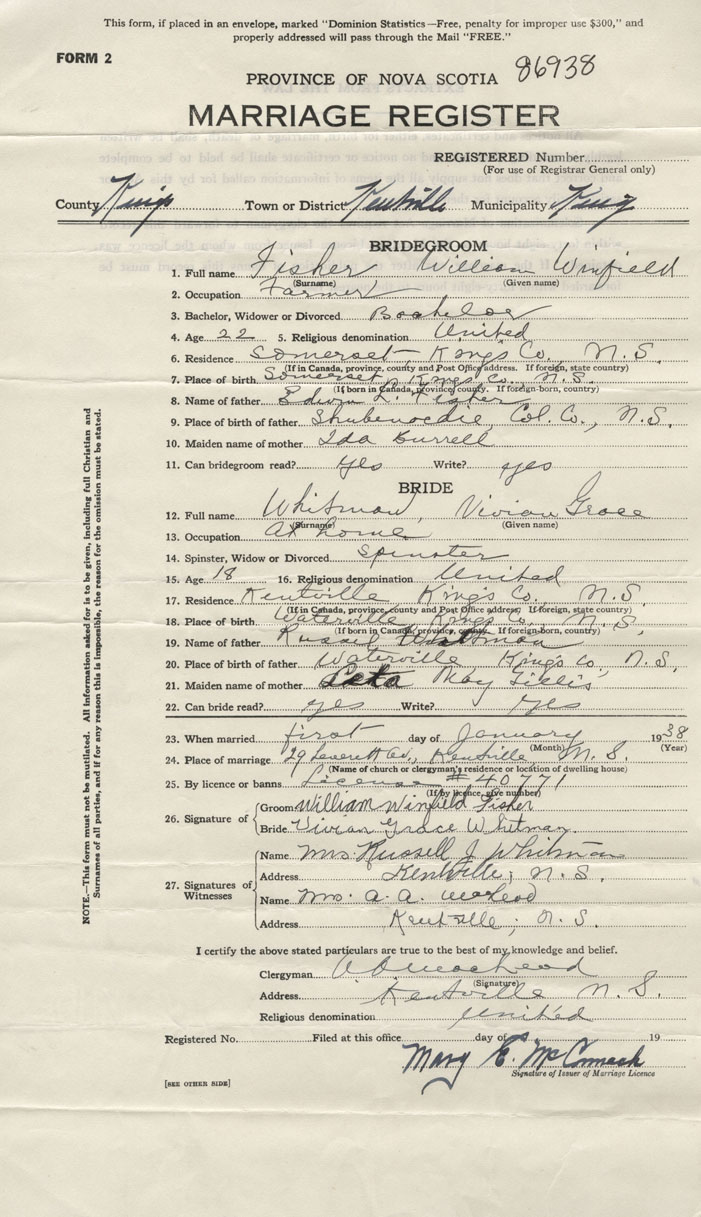 This form, if placed in an envelope, marked "Dominion Statistics—Free, penalty for improper use $300," and
properly addressed will pass through the Mail "FREE."
FORM 2
86938
PROVINCE OF NOVA SCOTIA
MARRIAGE REGISTER
REGISTERED Number
(For use of Registrar General only)
County Kings Town or District Kentville Municipality King
BRIDEGROOM
1. Full name Fisher William Winfield
(Surname) (Given name)
2. Occupation Farmer
3. Bachelor, Widower or Divorced Bachelor
4. Age 22 5. Religious denomination United
6. Residence Somerset Kings Co., N. S.
(If in Canada, province, county and Post Office address. If foreign, state country)
7. Place of birth Somerset, Kings Co. N. S.
(If born in Canada, province, county. If foreign-born, country)
8. Name of father Edwin L. Fisher
9. Place of birth of father Shubenacdie, Col. Co., N.S.
10. Maiden name of mother Ida Burrell
11. Can bridegroom read? Yes Write? yes
BRIDE
12. Full name Whitman, Vivian Grace
(Surname) (Given name)
13. Occupation At home
14. Spinster, Widow or Divorced Spinster
15. Age 18 16. Religious denomination United
17. Residence Kentville Kings Co. N.S.
(If in Canada, province, county and Post Office address, If foreign, state country)
18. Place of birth Waterville Kings Co. N. S.
(If born in Canada, province, county. If foreign-born, country)
19. Name of father Russell Whitman
20. Place of birth of father Waterville, Kings Co, N.S.
21. Maiden name of mother Leta May Lillis
22. Can bride read? Yes Write? Yes
23. When married first day of January 1938
(Month) (Year)
24. Place of marriage 29 Leverett Av., Kentville N. S.
(Name of church or clergyman's residence or location of dwelling house)
25. By licence or banns License #40771
(If by licence, give number)
26. Signature of Groom William Winfield Fisher
Bride Vivian Grace Whitman
27. Signatures of Witnesses Name Mrs. Russell J Whitman
Address Kentville, N. S.
Name Mrs. A. A.
Address Kentville, N. S.
I certify the above stated particulars are true to the best of my knowledge and belief.
Clergyman
(Signature)
Address Kentville N. S.
Religious denomination United
Registered No. Filed at this office day of 19
Mary E. McCormack
Signature of Issuer of Marriage Licence
[SEE OTHER SIDE]
NOTE.—This form must not be mutilated. All information asked for is to be given, including full Christian and
Surnames of all parties, and if for any reason this is impossible, the reason for the omission must be stated.